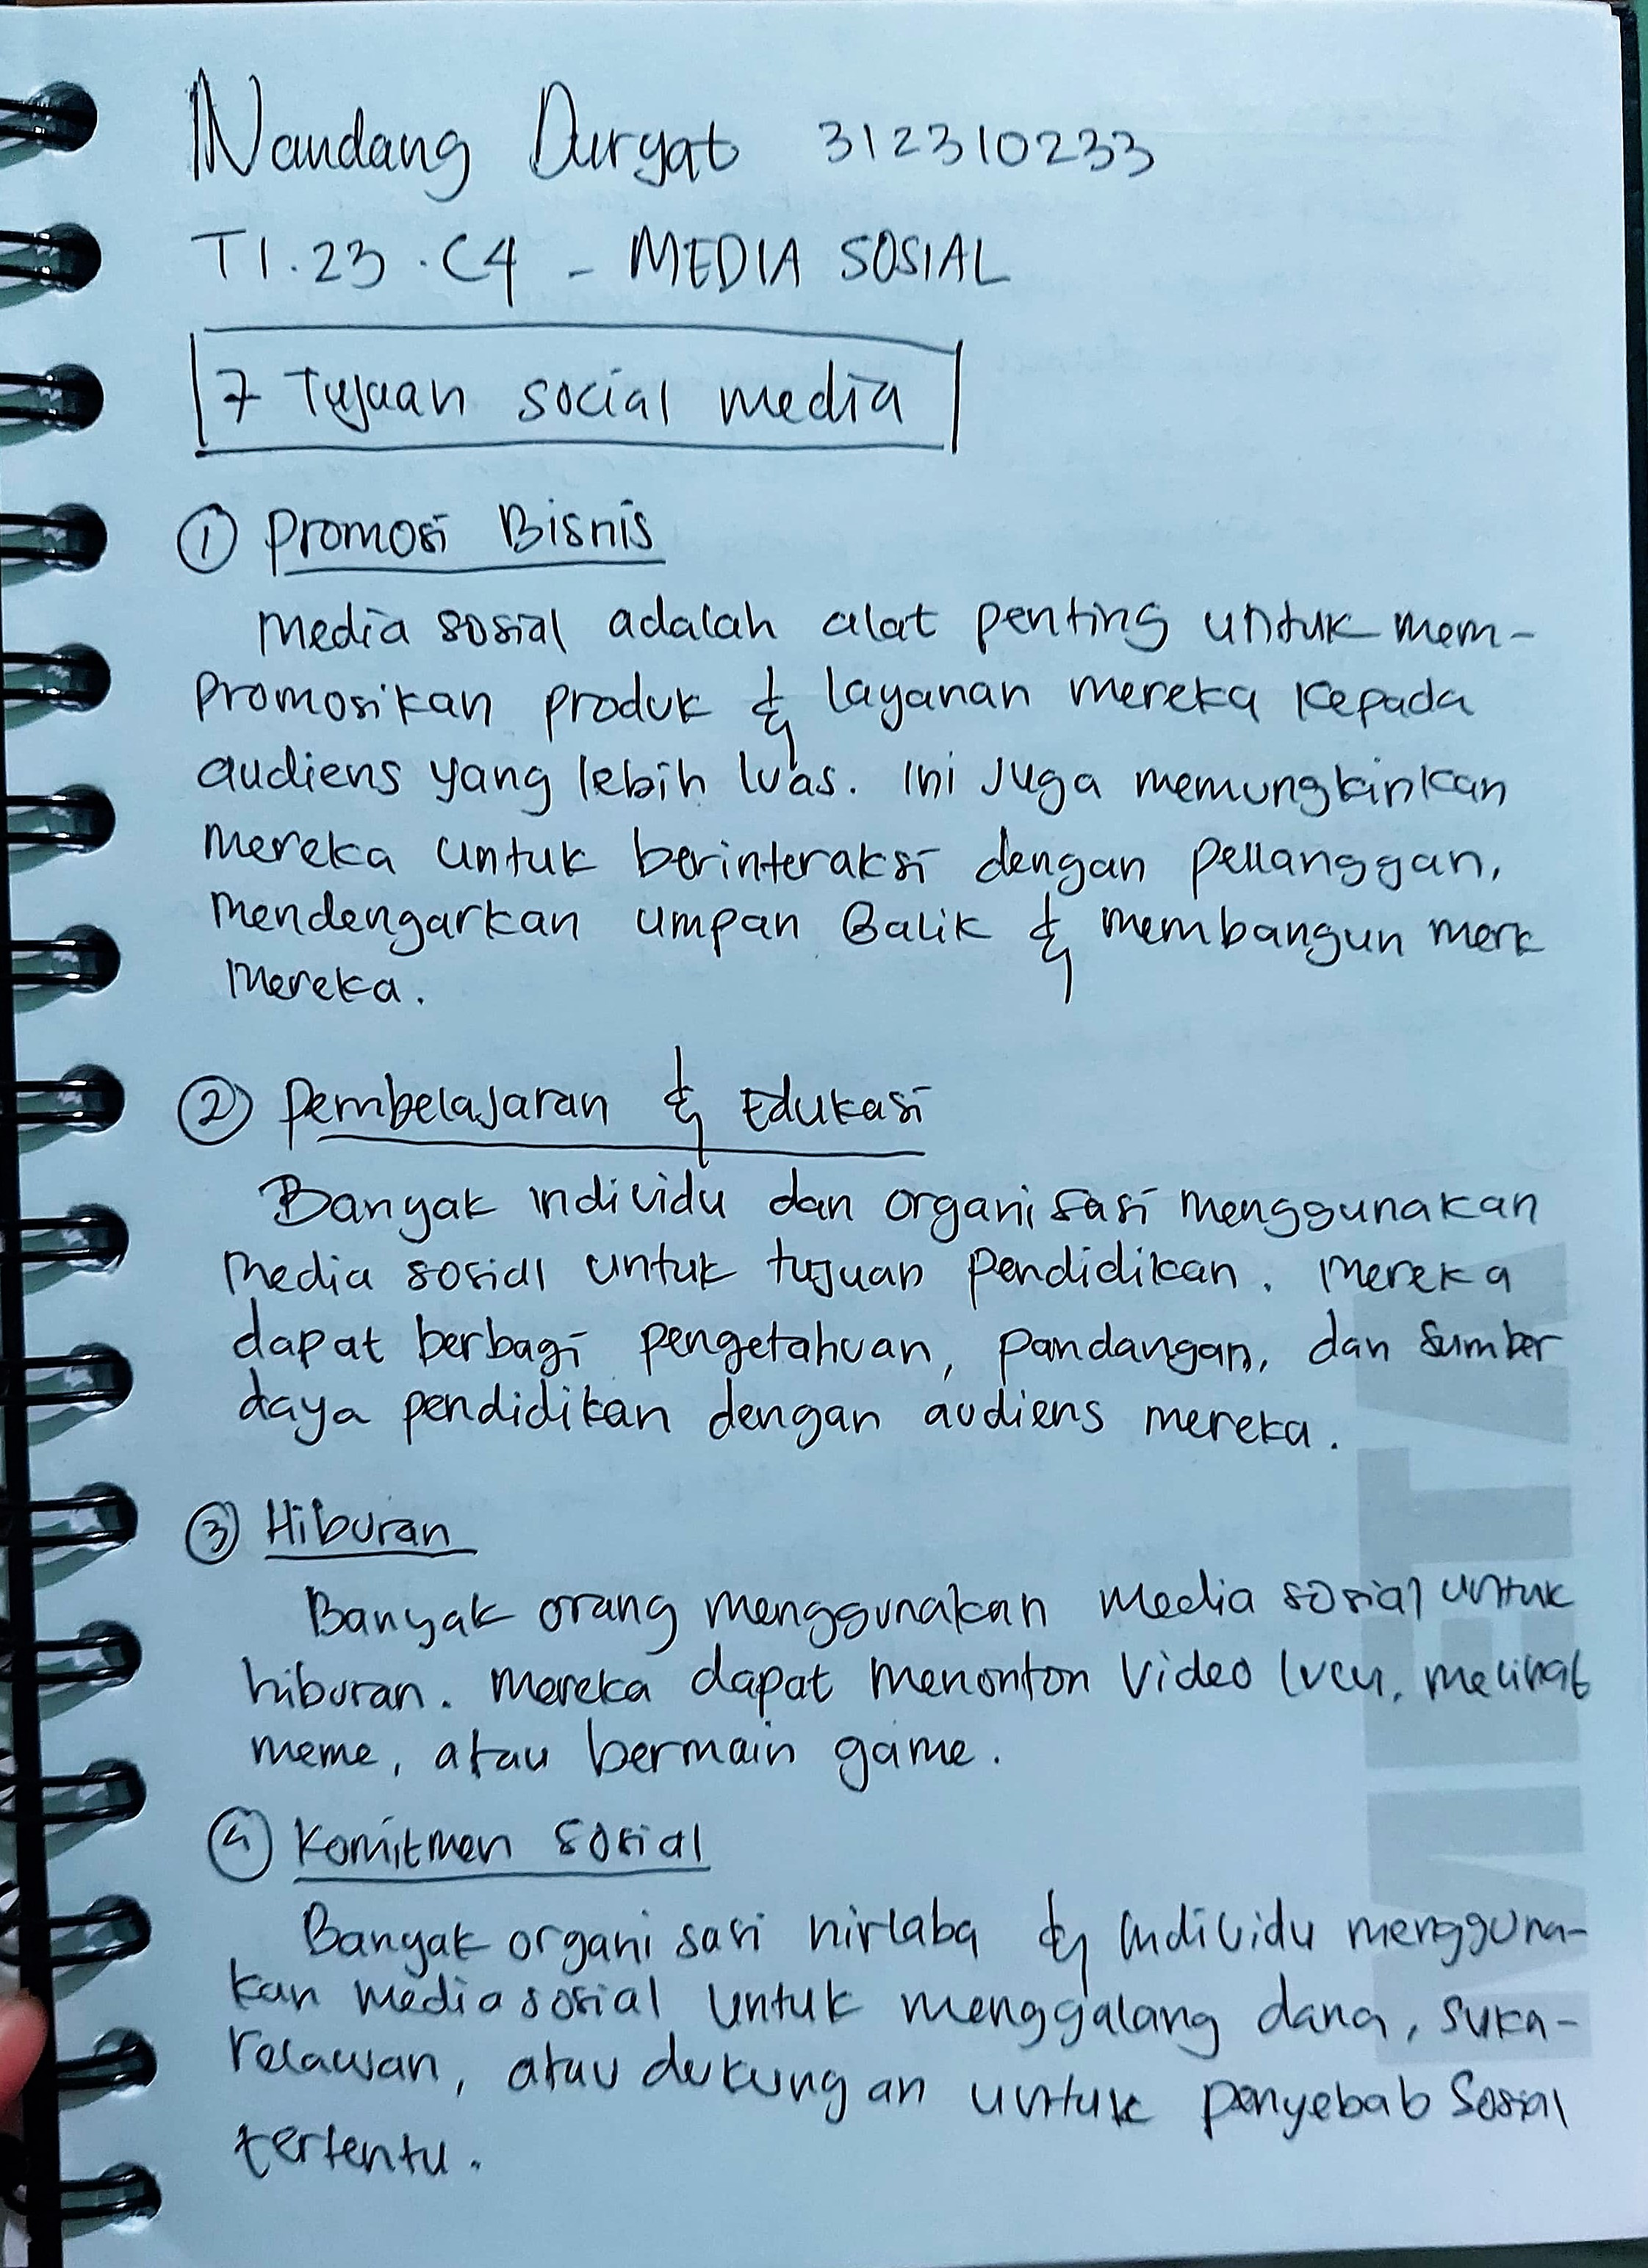 Nandang Duryat 312310233
TI.23.C4 - MEDIA SOSIAL
7 Tujuan social media
① Promosi Bisnis
Media sosial adalah alat penting untuk mem-
promosikan produk & layanan mereka kepada
audiens yang lebih luas. Ini juga memungkinkan
mereka untuk berinteraksi dengan pellanggan,
mendengarkan umpan Balik & membangun merk
mereka.
② Pembelajaran & Edukasi
Banyak individu dan organisasi menggunakan
media sosial untuk tujuan pendidikan. Mereka
dapat berbagi pengetahuan, pandangan, dan sumber
daya pendidikan dengan audiens mereka.
③ Hiburan
Banyak orang menggunakan media sosial untuk
hiburan. Mereka dapat menonton video lucu, melihat
meme, atau bermain game.
④ Komitmen sosial
Banyak organisasi nirlaba & individu mengguna-
kan media sosial untuk menggalang dana, suka-
relawan, atau dukungan untuk penyebab sosial
tertentu.
META